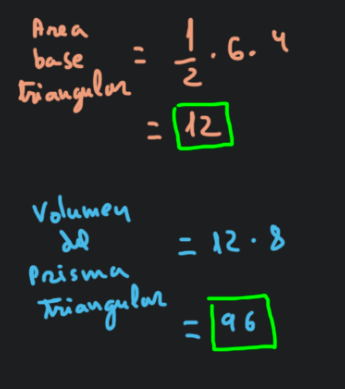 Area
base
triangular
= 1/2 · 6 · 4
= 12
Volumen
del
Prisma
Triangular
= 12 · 8
= 96